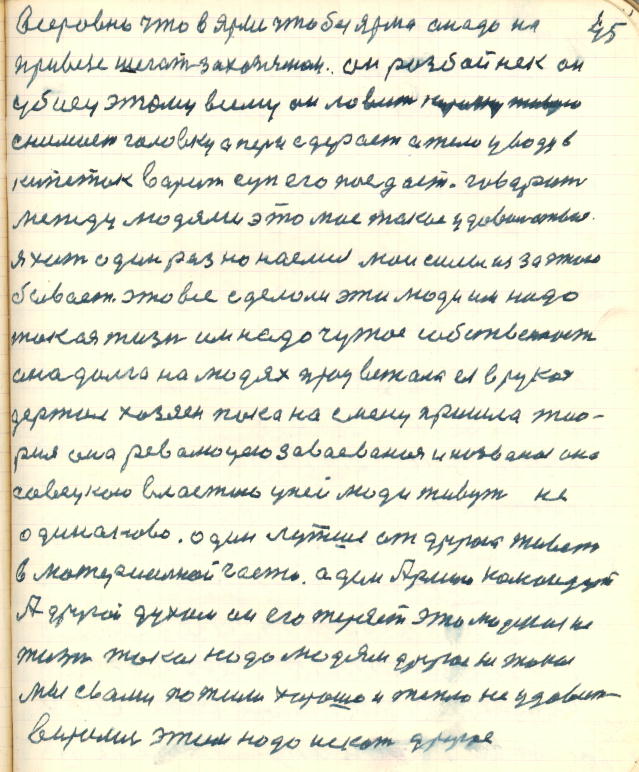 45
всеровно что в ярме чтобы ярма онадо на
привезе шегат захозяином. он розбойнек он
убиец этому всему он ловит живую
снимает головку а перя сдерает а тело уводу в
кипеток варит суп его поедает. говарит
между людями это мое такое удовольствие
я хоть один раз но наемся мои силы из за этого
бывает. это все сделали эти люди им надо
такая жизн им надо чужое собственост
она долга на людях процветала ея в руках
держал хозяен пока на смену пришла тио-
рия она революцею заваеваная и названа она
совецкою властию уней люди живут не
одинаково. один лутше от другога живет
в материалной часте. адин Армию камандует
А другой духом он его теряет это людская не
жизн такая надо людям другое не такое
мы свами пожили хорошо и тепло не удовит-
варились этим надо искат другое